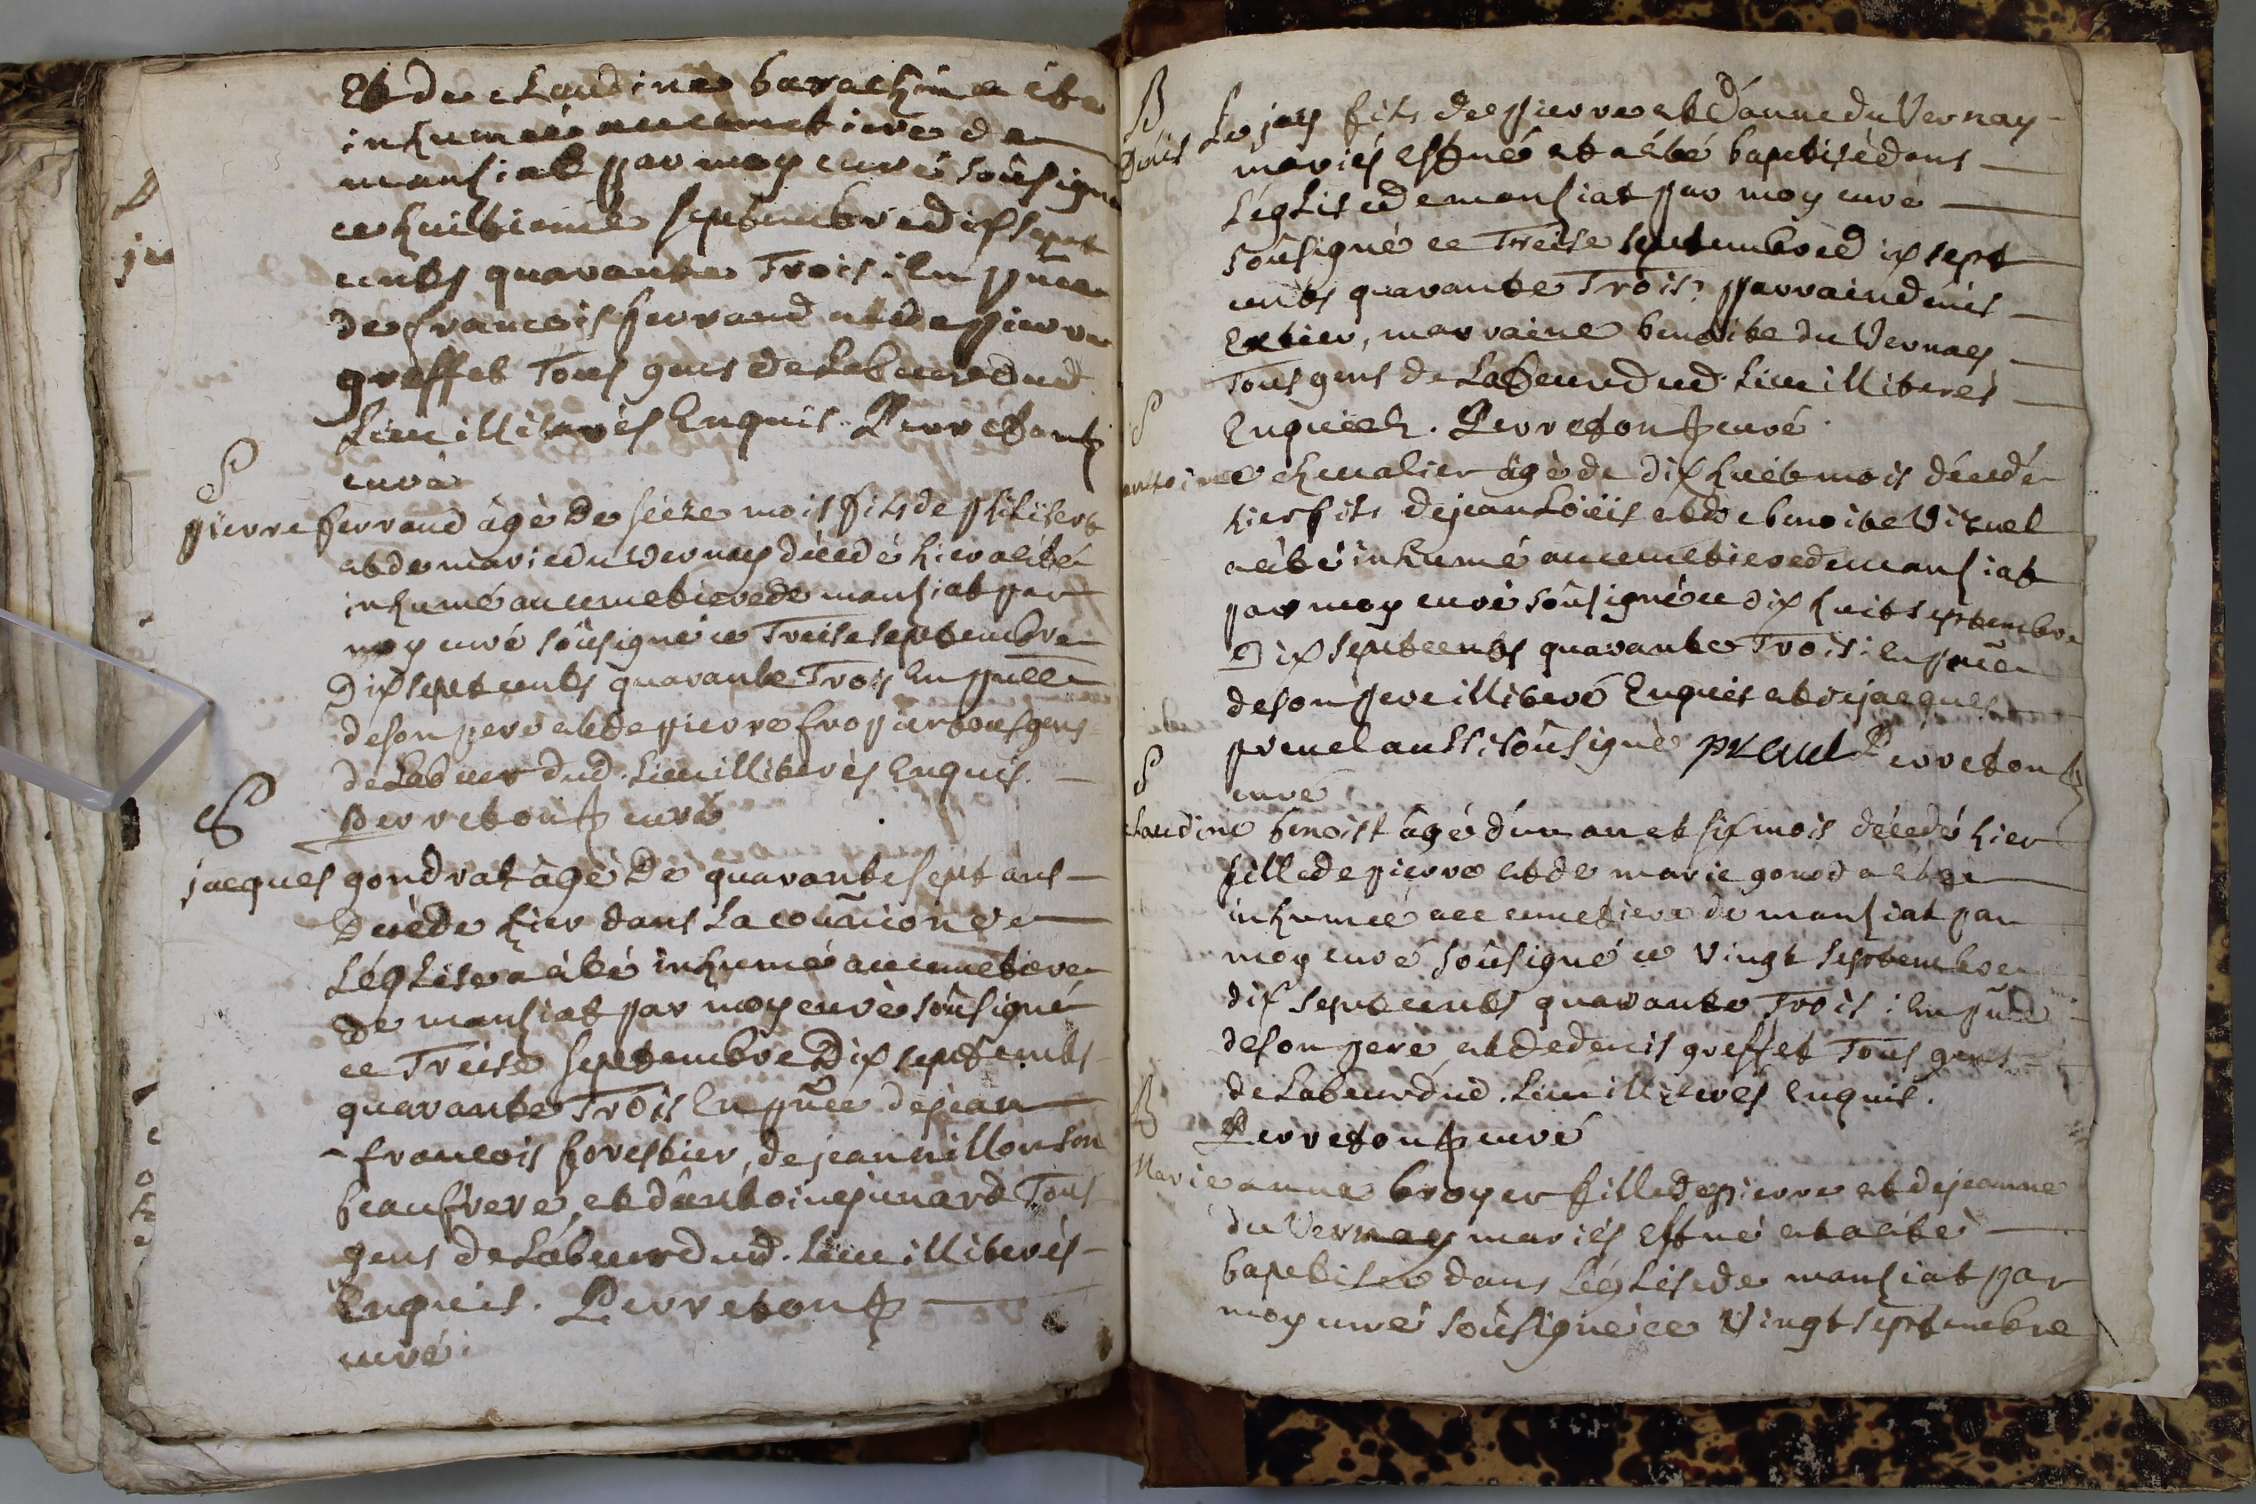 Et de Claudine barachin a été
inhumée au cemetiere de
mansiat par moy curé soûsigné
ce huittiemé septembre dix sept
cents quarante Trois. En pnce
de francois ferrand et de pierre
greffet Tous gens de Labeur dud.
Lieu illiterés Enquis. Perreton p
curé
S
pierre ferrand âgé de seize mois fils de philibert
et de marie du Vernay décédé hier a été
inhumé au cemetiere de mansiat par
moy curé soûsigné ce Treise septembre
Dix sept cents quarante Trois En pnce
de son pere et de pierre fropier tous gens
de Labeur dud. Lieu illiterés Enquis.
Perreton p curé
S
jacques gondrat âgé De quarante sept ans
Décédé hier dans La comunion de
Léglise a été inhumé au cemetiere
De mansiat par moy curé soûsigné
ce Treise septembre Dix sept cents
quarante Trois En pnce de jean
francois forestier, de jean nillon son
beaufrere, et d'antoine punard Tous
gens de Labeur dud. Lieu illiterés
Enquis. Perreton p
curé.
B
denis Lejay fils de pierre et D'anne du Vernay
mariés est né et a été baptisé dans
Léglise de mansiat par moy curé
soûsigné ce Treise septembre dix sept
cents quarante Trois. parrain denis
marraine benoite du Vernay
Tous gens de Labeur dud. Lieu illiterés
Enquis. Perreton p curé.
S
antoine chevalier âgé de dix huit mois décédé
hier fils de jean Loüis et de benoite Vizuel
a été inhumé au cemetiere de mansiat
par moy curé soûsigné ce dix huit septembre
Dix sept cents quarante Trois. En pnce
de son pere illiteré Enquis et de jacques
pruel aussi soûsigné pruel Perreton p
curé
S
claudine benoist âgé d'un an et six mois décédé hier
fille de pierre et de marie gourd a été
inhumée au cemetiere de mansiat par
moy curé soûsigné ce Vingt septembre
dix sept cents quarante Trois. En pnce
de son pere et de denis greffet Tous gens
de Labeur dud. Lieu illiterés Enquis.
Perreton p curé
B
Marie anne broyer fille de pierre et de jeanne
du Vernay mariés est né et a été
baptisée dans Léglise de mansiat par
moy curé soûsigné ce Vingt septembre